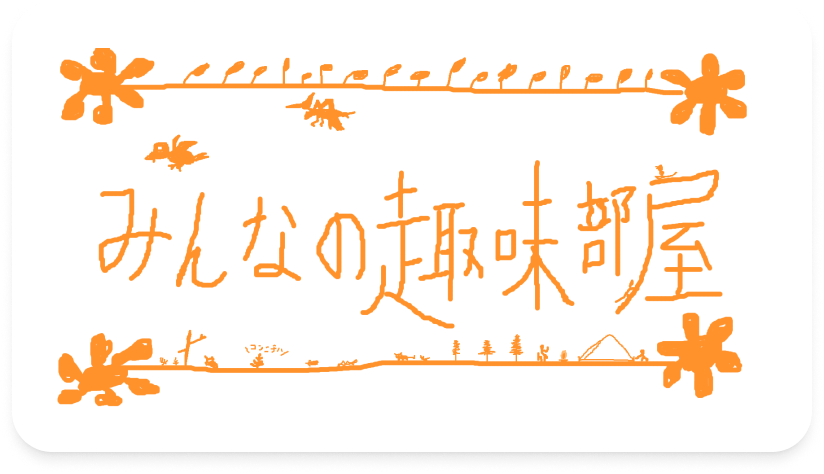 みんなの趣味部屋
\コンニチハ/